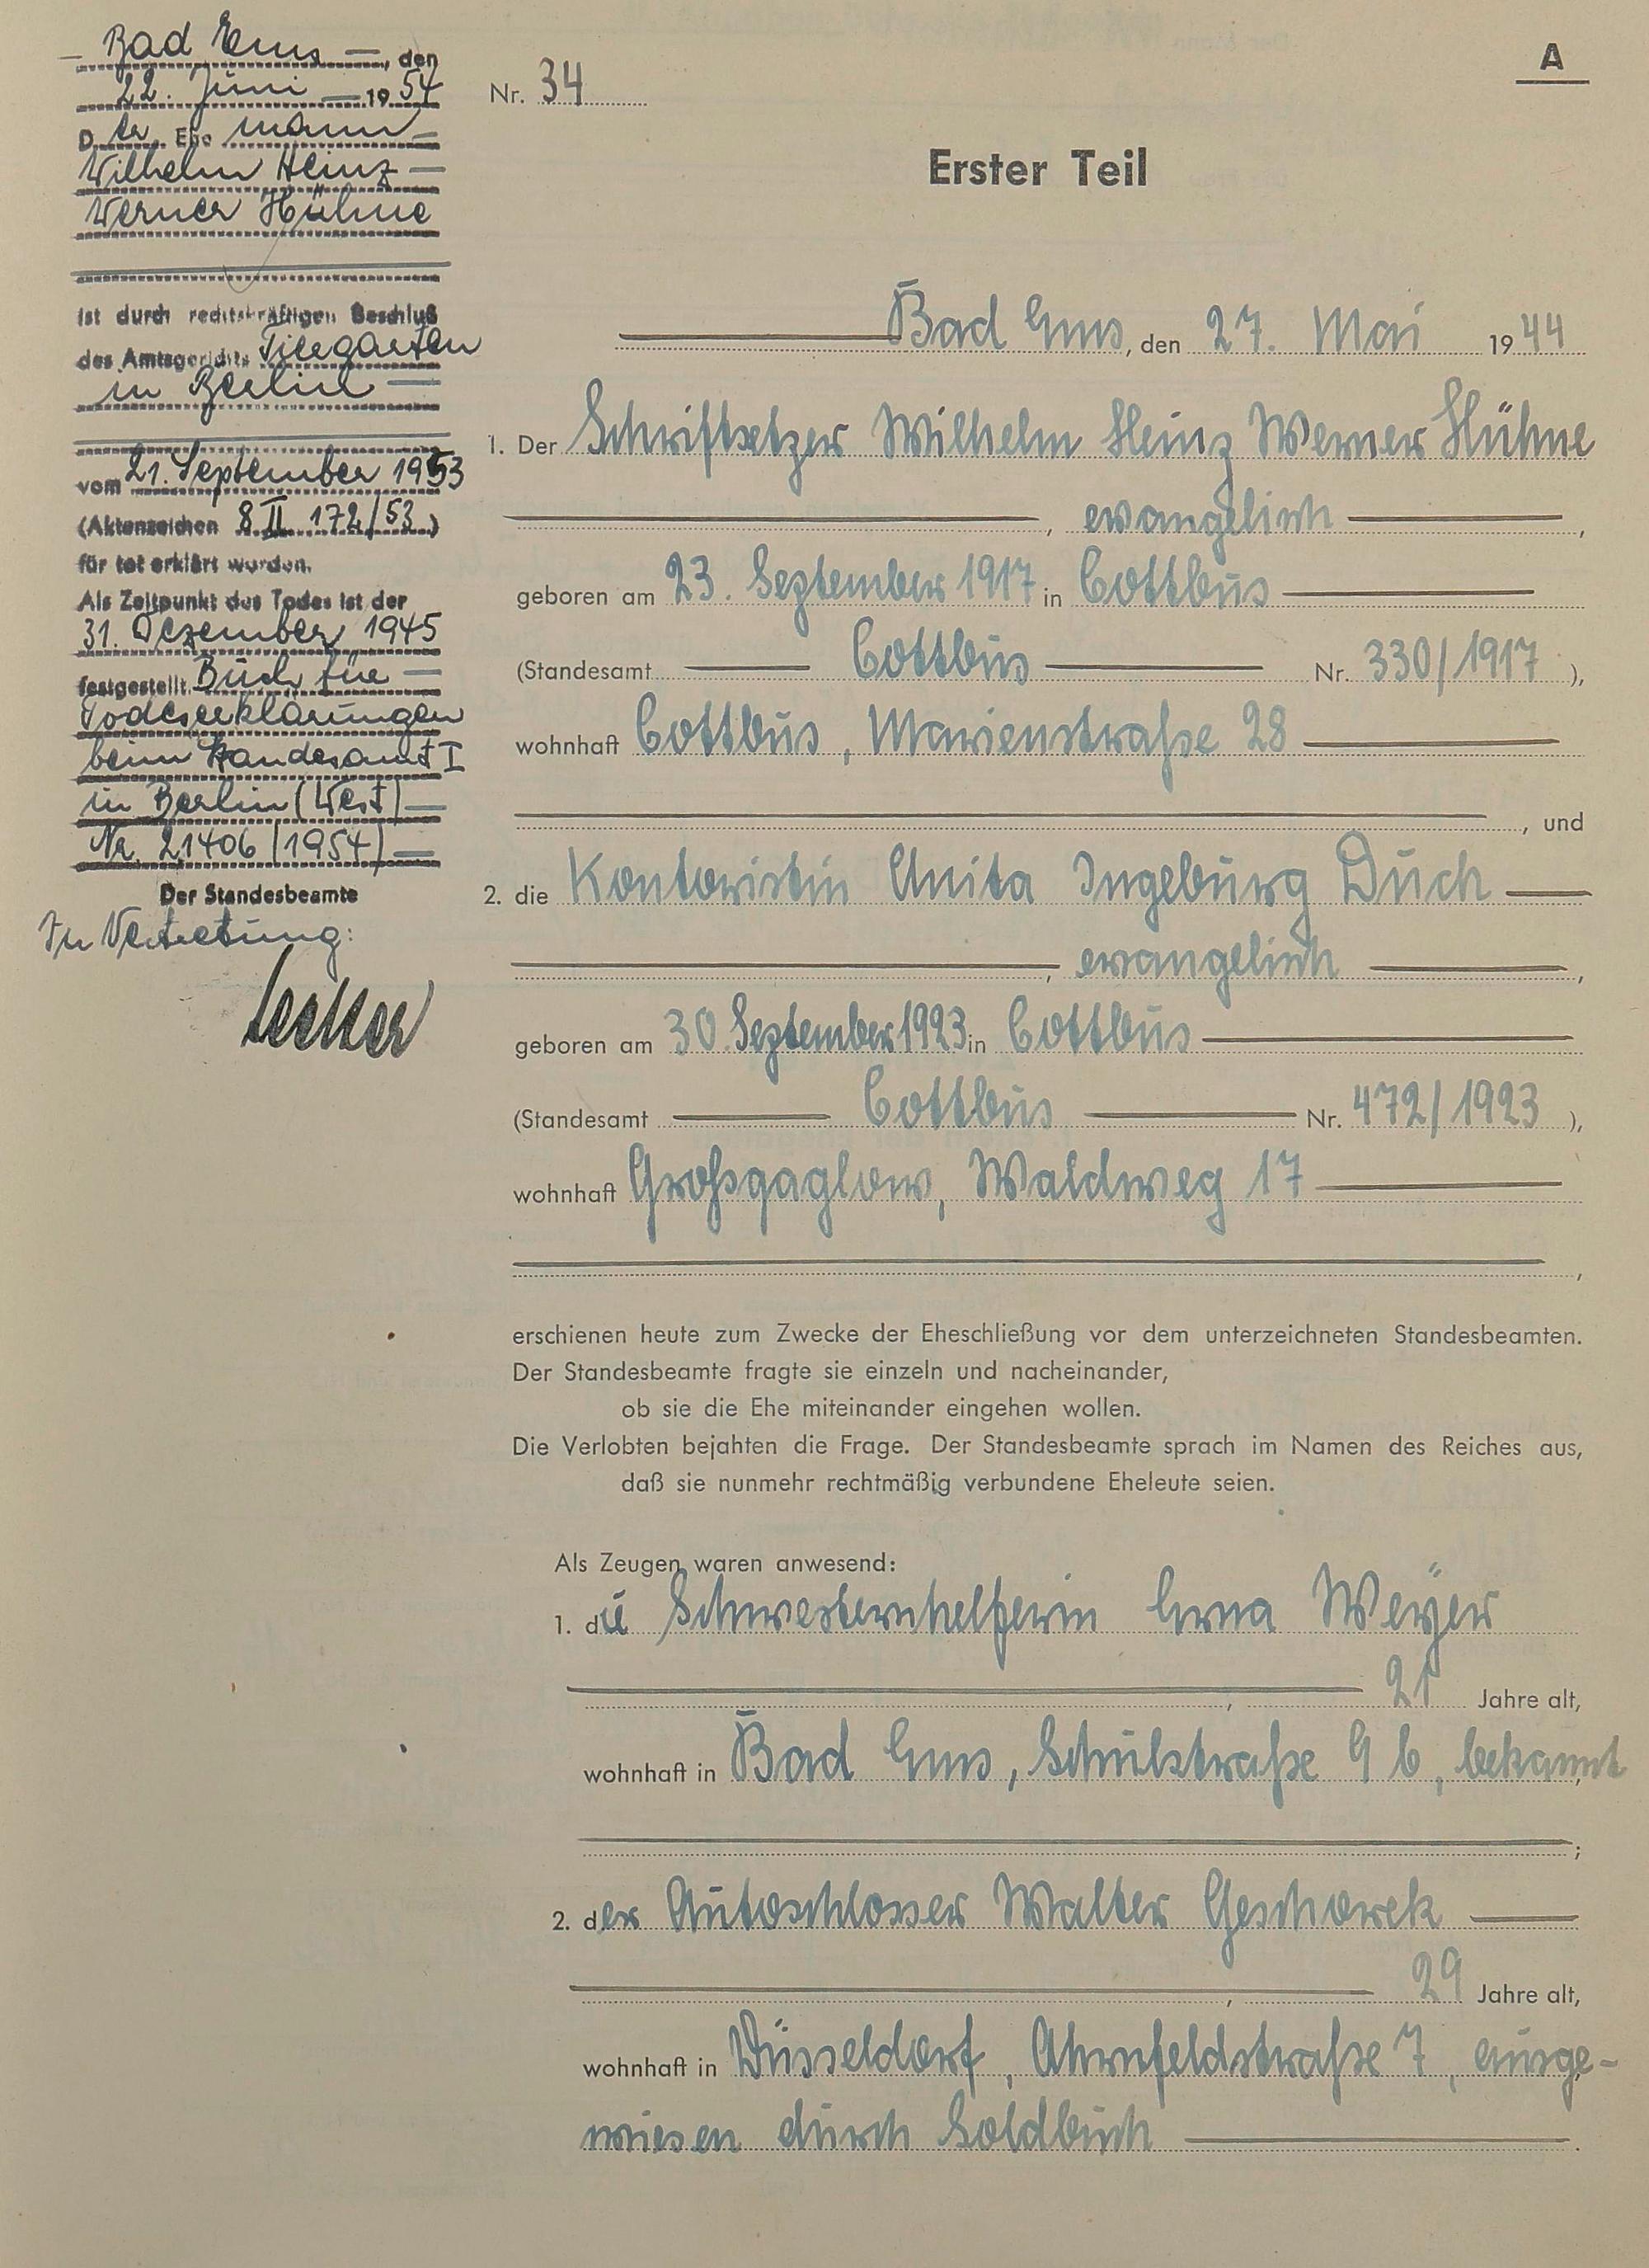 – Bad Ems –, den
22. Juni – 19 54
Der Ehemann –
Wilhelm Heinz –
Werner Hühne
ist durch rechtskräftigen Beschluß
des Amtsgerichts Tiergarten
in Berlin –
vom 21. September 1953
(Aktenzeichen 8 II 172/53)
für tot erklärt worden.
Als Zeitpunkt des Todes ist der
31. Dezember 1945
festgestellt. Buch für –
Todeserklärungen
beim Standesamt I
in Berlin (West) –
Nr. 21406/1954) –
Der Standesbeamte
In Vertretung:
A
Nr. 34
Erster Teil
Bad Ems, den 27. Mai 1944
1. Der Schriftsetzer Wilhelm Heinz Werner Hühne
, evangelisch ,
geboren am 23. September 1917 in Cottbus
(Standesamt Cottbus Nr. 330/1917 ),
wohnhaft Cottbus, Marienstraße 28
, und
2. die Kontoristin Anita Ingeburg Duch
, evangelisch ,
geboren am 30. September 1923 in Cottbus
(Standesamt Cottbus Nr. 472/1923 ),
wohnhaft Großgaglow, Waldweg 17
,
erschienen heute zum Zwecke der Eheschließung vor dem unterzeichneten Standesbeamten.
Der Standesbeamte fragte sie einzeln und nacheinander,
ob sie die Ehe miteinander eingehen wollen.
Die Verlobten bejahten die Frage. Der Standesbeamte sprach im Namen des Reiches aus,
daß sie nunmehr rechtmäßig verbundene Eheleute seien.
Als Zeugen waren anwesend:
1. die Schwesternhelferin Erna Weyer
, 21 Jahre alt,
wohnhaft in Bad Ems, Schulstraße 9 b, bekannt
;
2. der Autoschlosser Walter Geschorek
, 29 Jahre alt,
wohnhaft in Düsseldorf, Ahrnfeldstraße 7, ausge-
wiesen durch Soldbuch .